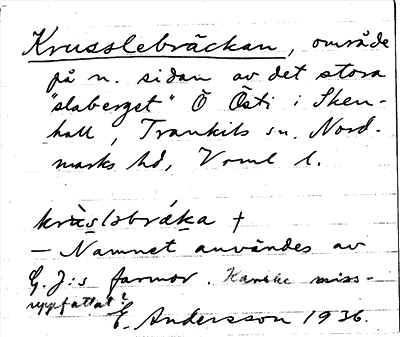 Krusslebräckan, område
på n. sidan av det stora
"slaberget" Ö Östi i Sken-
hall, Trankils sn, Nord-
marks hd, Vrml l.
krùsləbráka †
— Namnet användes av
G. J:s farmor. Kanske miss-
uppfattat?
E. Andersson 1936.